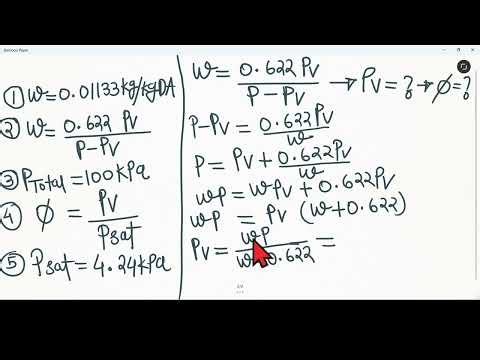 ① W=0.01133kg/kgDA
② W= 0.622 Pv / P-Pv
③ PTotal=100KPa
④ Ø = Pv / Psat
⑤ Psat=4.24kPa
W= 0.622 Pv / P-Pv → Pv=? → Ø=?
P-Pv= 0.622Pv / W
P= Pv+ 0.622Pv / W
WP = WPv + 0.622Pv
WP = Pv (W+0.622)
Pv= WP / W 0.622 =